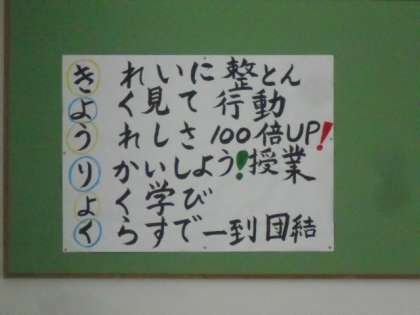 きれいに整とん
よく見て行動
うれしさ100倍UP!
りかいしよう!授業
よ学び
くらすで一到団結